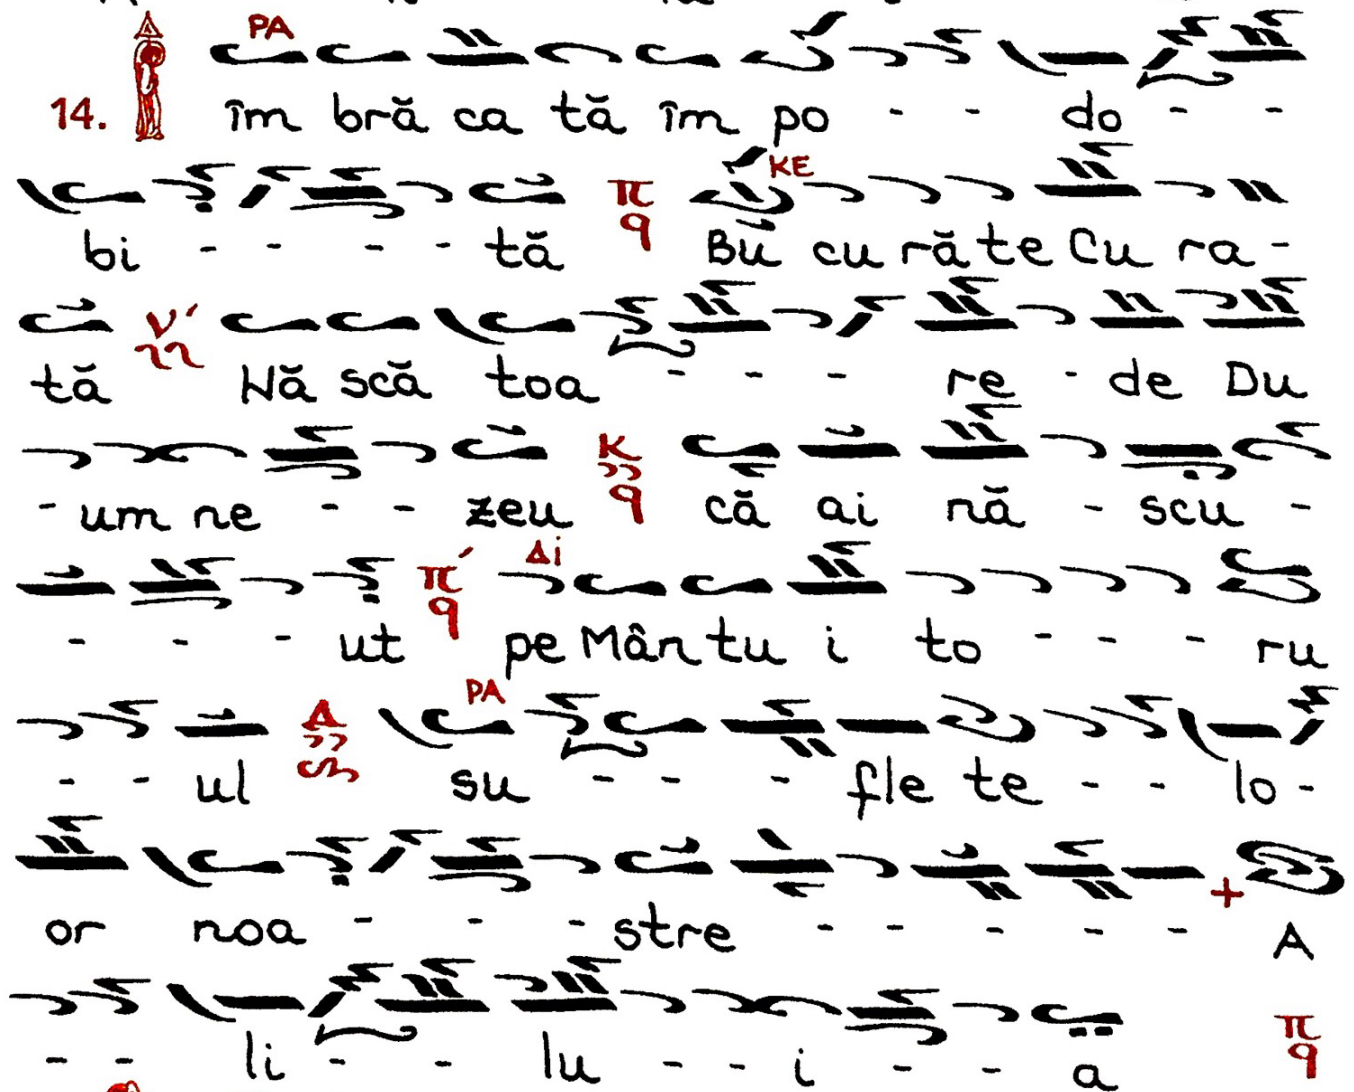 PA
14. îm bră ca tă îm po - - do - -
KE
bi - - - - tă π q Bu cu ră te Cu ra -
tă ν΄ Nă scă toa - - - re - de Du
- um ne - - zeu K q că ai nă - scu -
Δi
- - - ut π΄ q pe Mân tu i to - - - ru
PA
- - ul Δ su - - - fle te - - lo -
or noa - - - stre - - - - - + A
- - li - - lu - - i - - a π q